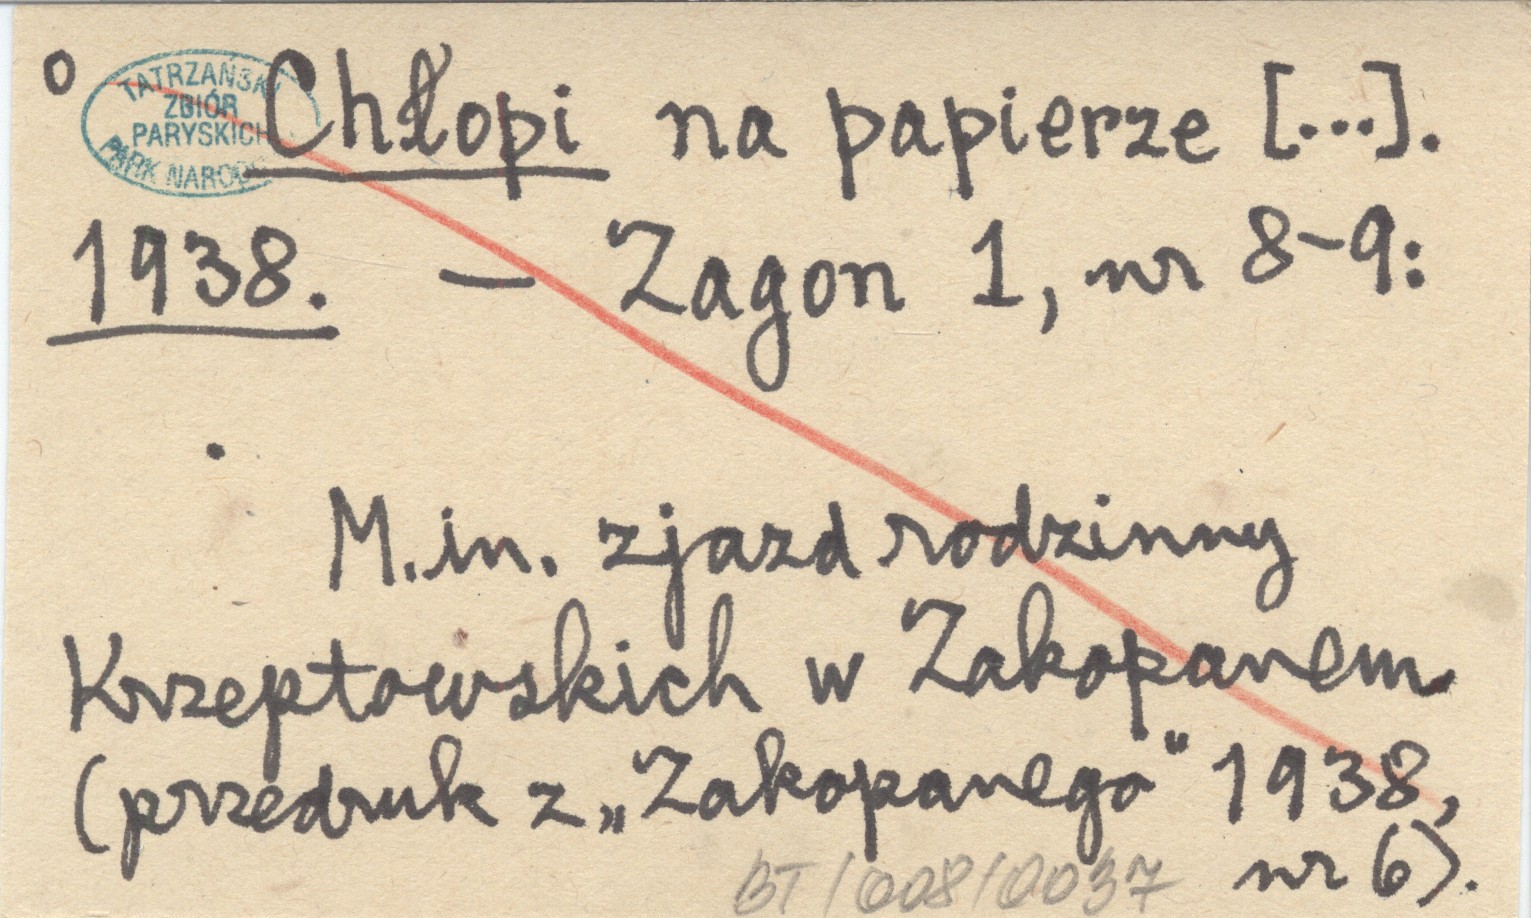 o Chłopi na papierze [...].
TATRZAŃSKI
ZBIÓR
PARYSKICH
PARK NARODO
1938. – Zagon 1, nr 8–9:
M.in. zjazd rodzinny
Krzeptowskich w Zakopanem.
(przedruk z „Zakopanego" 1938,
nr 6).
BT/008/0037